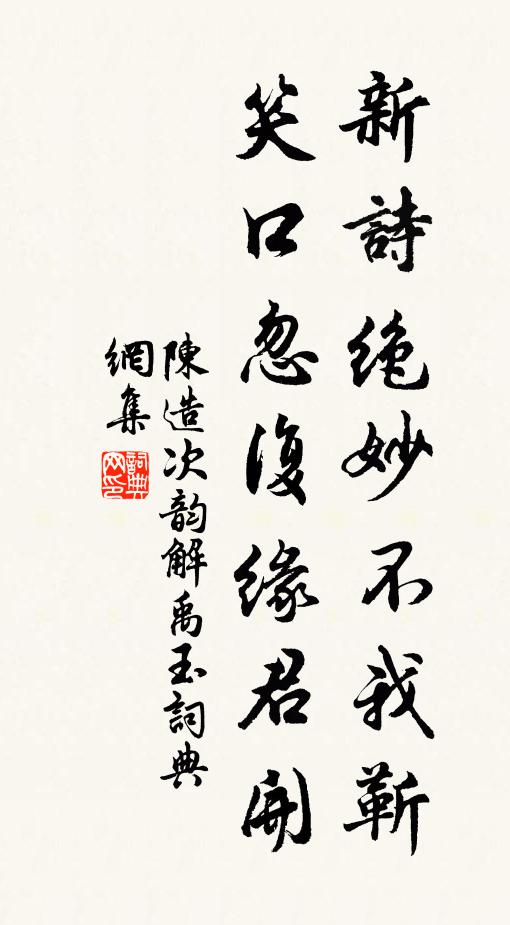 新詩絶妙不我靳
笑口忽復緣君開
陳造次韵解禹玉詞典
網集
詞典
网印